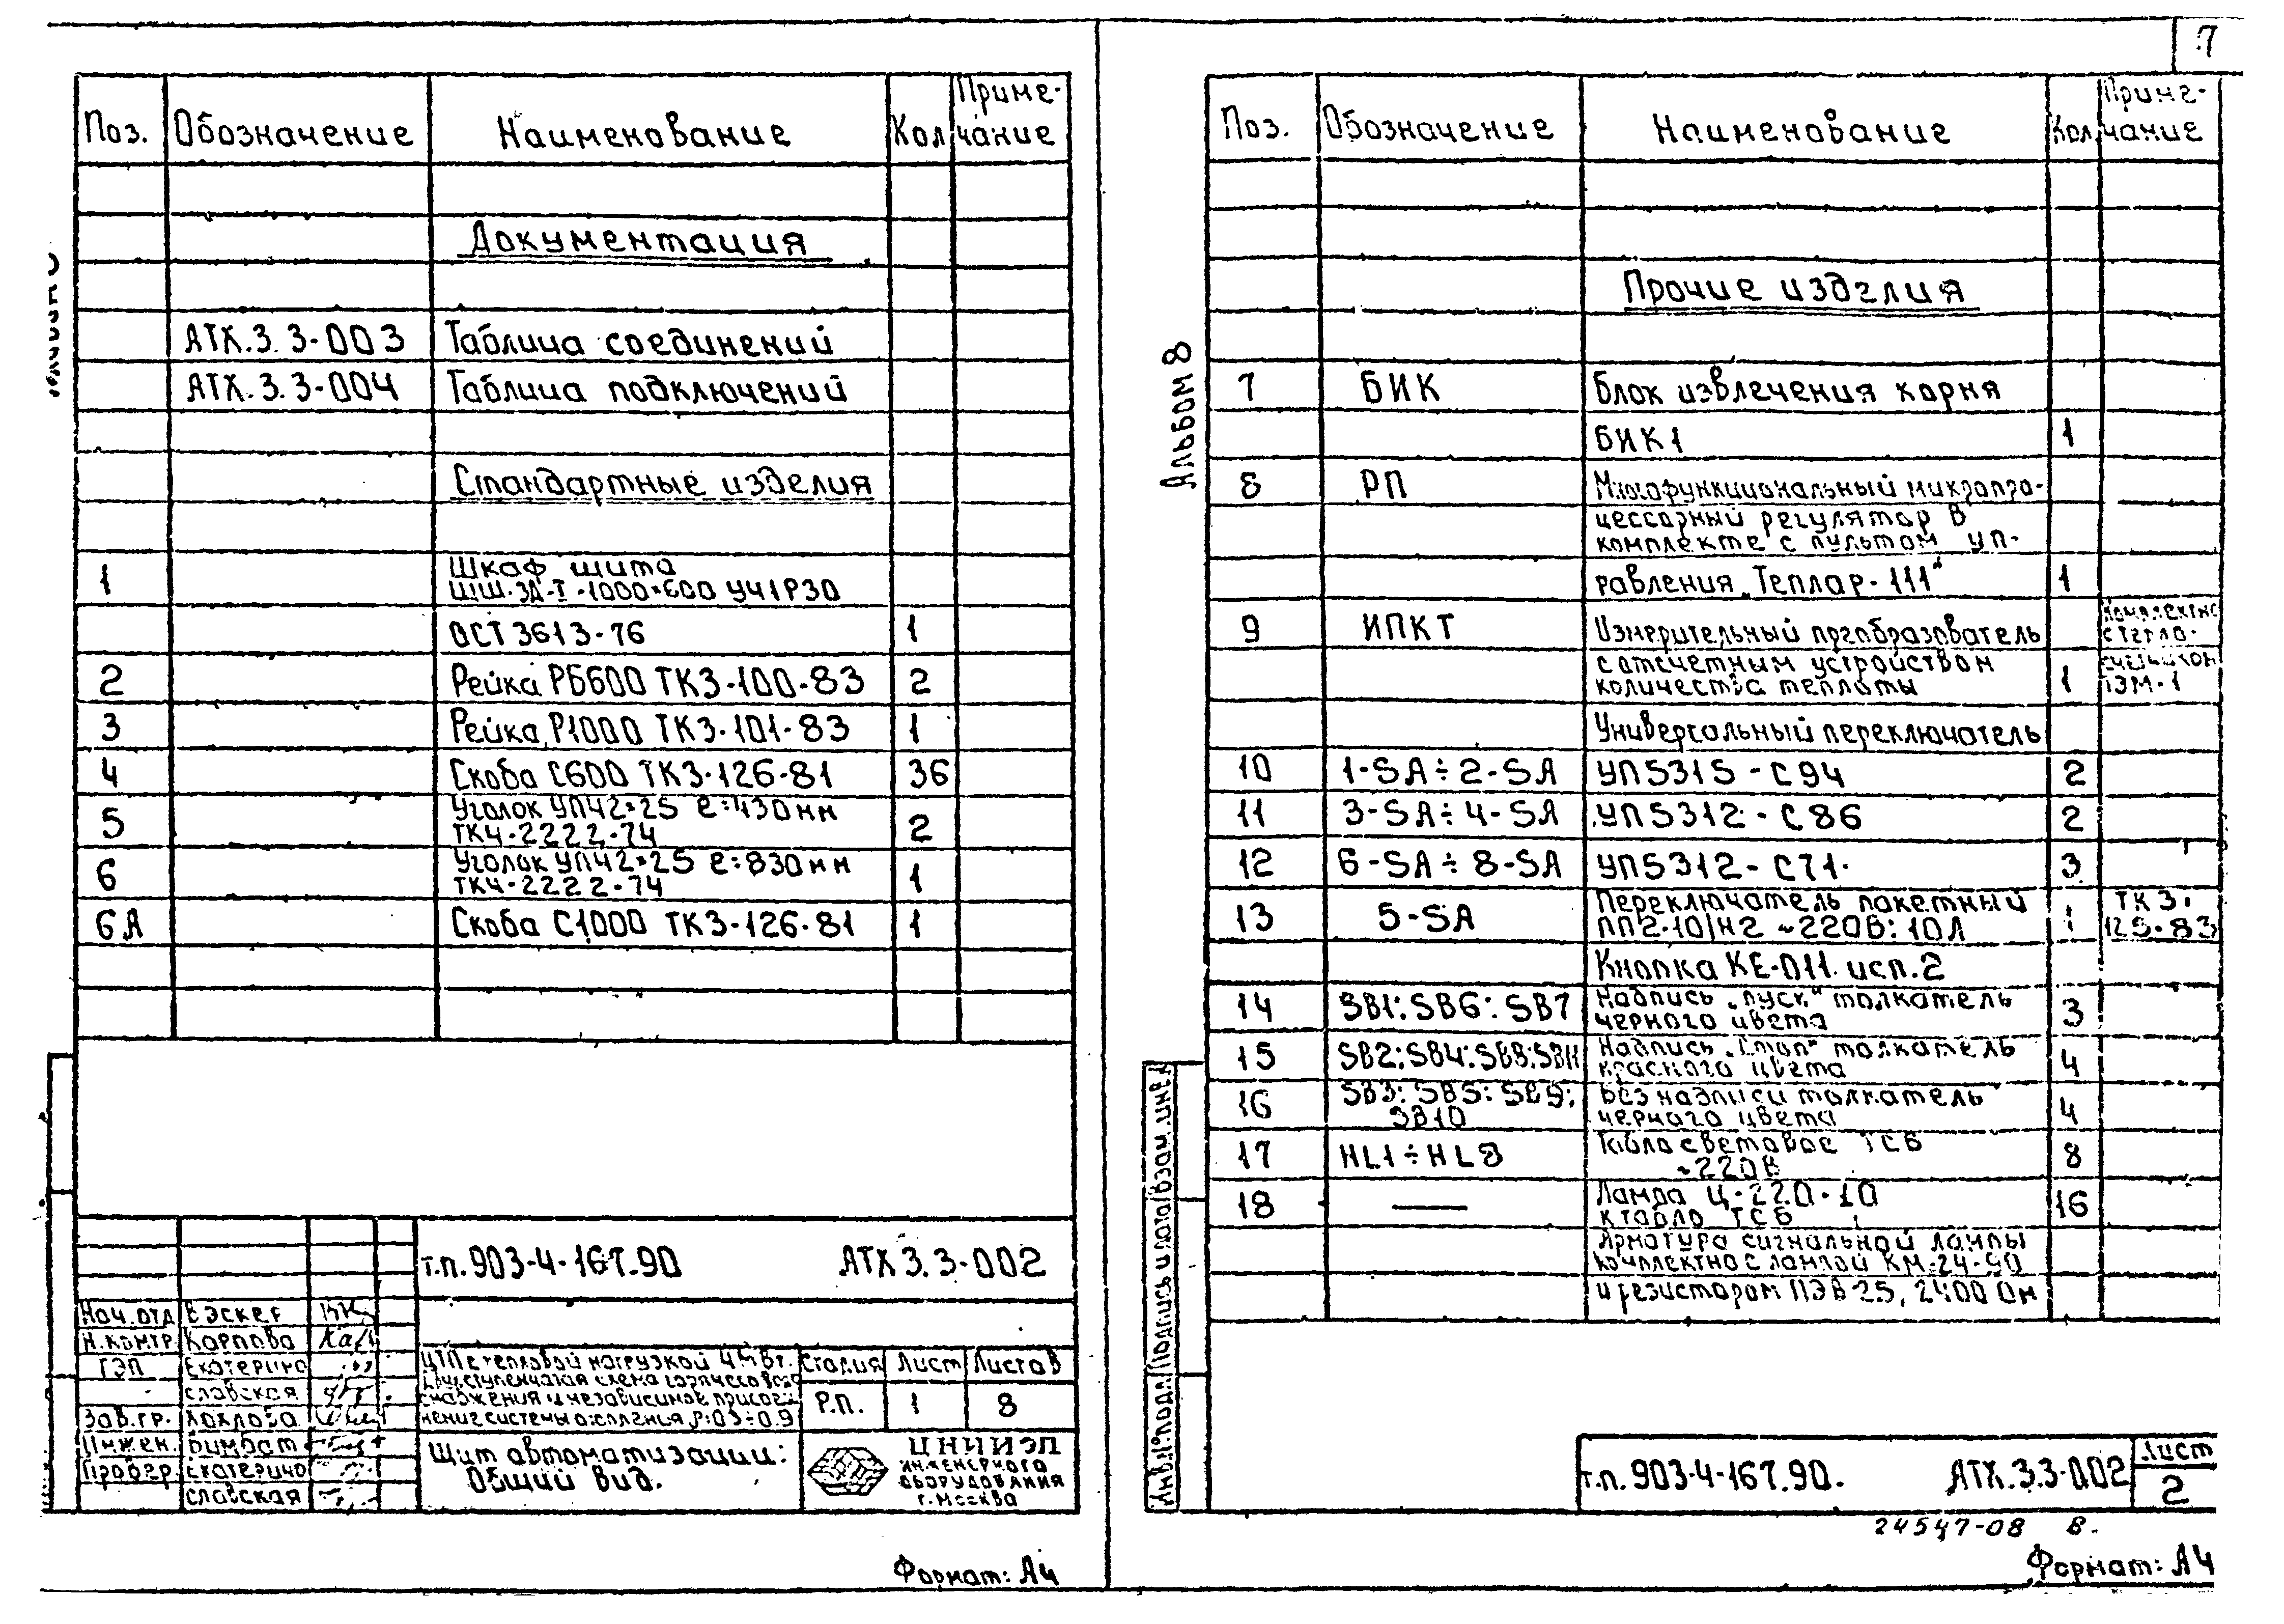 7
Поз. Обозначение Наименование Кол Приме-
чание
Документация
АТХ.3.3-003 Таблица соединений
АТХ.3.3-004 Таблица подключений
Стандартные изделия
1 Шкаф щита
ЩШ-ЗД-I-1000×600 УЧ1Р30
ОСТ 3613-76 1
2 Рейка РБ600 ТК3-100-83 2
3 Рейка Р1000 ТК3-101-83 1
4 Скоба С600 ТК3-126-81 36
5 Уголок УП42×25 ℓ=430мм
ТК4-2222-74 2
6 Уголок УП42×25 ℓ=830мм
ТК4-2222-74 1
6А Скоба С1000 ТК3-126-81 1
т.п. 903-4-167.90 АТХ 3.3-002
Нач. отд
Н.контр. Карпова
ГЭП Екатерино
славская
Зав.гр. Хохлова
Инжен.
Провер. Екатерино
славская
ЦТП с тепловой нагрузкой 4МВт.
Двухступенчатая схема горячего водо
снабжения и независимое присоеди
нение системы отопления
Стадия Лист Листов
Р.П. 1 8
Щит автоматизации:
Общий вид.
ЦНИИЭП
ИНЖЕНЕРНОГО
ОБОРУДОВАНИЯ
г. Москва
Формат: А4
Альбом 8
Поз. Обозначение Наименование Кол. Приме-
чание
Прочие изделия
7 БИК Блок извлечения корня
БИК1 1
8 РП Многофункциональный микропро-
цессорный регулятор в
комплекте с пультом уп-
равления „Теплар-111" 1
9 ИПКТ Измерительный преобразователь
с отсчетным устройством
количества теплоты 1
комплектно
с тепло-
счетчиком
ТЭМ-1
Универсальный переключатель
10 1-SA÷2-SA УП5315-С94 2
11 3-SA÷4-SA УП5312-С86 2
12 6-SA÷8-SA УП5312-С71. 3
13 5-SA Переключатель пакетный
ПП2-10/Н2 ~220В; 10А 1 ТК3-
125-83
Кнопка КЕ-011. исп.2
14 SB1; SB6; SB7 Надпись „пуск" толкатель
черного цвета 3
15 SB2; SB4; SB8; SB11 Надпись „Стоп" толкатель
красного цвета 4
16 SB3; SB5; SB9; Без надписи толкатель
SB10 черного цвета 4
17 HL1÷HL8 Табло световое ТСБ
~220В 8
18 — Лампа Ц-220-10
к табло ТСБ 16
Арматура сигнальной лампы
комплектно с лампой КМ-24-90
и резистором ПЭВ 25, 2400 Ом
Инв.№подл. Подпись и дата Взам.инв.
т.п. 903-4-167.90. АТХ.3.3-002 Лист
2
24547-08 8.
Формат: А4